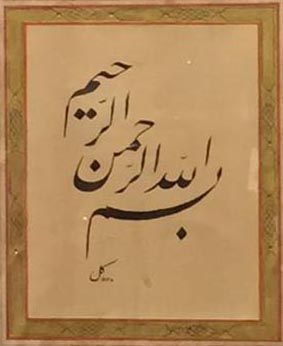 بسم
الله الرحمن
الر
حیم